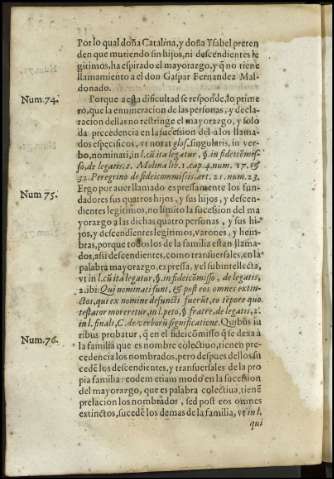 Por lo qual doña Catalina, y doña Ysabel preten
den que muriendo sin hijos, ni descendientes le
gitimos, ha espirado el mayorazgo, y q̃ no tiene
llamamiento a el don Gaspar Fernandez Mal-
donado.
Num.74. Porque a esta dificultad se responde, lo prime-
ro, que la enumeracion de las personas, y decla-
racion dellas no restringe el mayorazgo, y solo
da precedencia en la sucession del a los llama-
dos especificos, vt notat glos. singularis, in ver-
bo, nominati, in l. cũ ita legatur, §. in fideicõmis-
so, de legatis. 2. Molina lib. 1. cap. 4. num. 17. &
32. Peregrino de fideicommissis, art. 21. num. 23.
Num 75. Ergo por auer llamado expressamente los fun-
dadores sus quatros hijos, y sus hijos, y descen-
dientes legitimos, no limito la sucession del ma
yorazgo a las dichas quatro personas, y sus hi-
jos, y descendientes legitimos, varones, y hem-
bras, porque todos los de la familia estan llama-
dos, assi descendientes, como transuersales, en la
palabra mayorazgo, expressa, vel subintellecta,
vt in l. cũ ita legatur, §. in fideicõmisso, de legatis,
2. ibi: Qui nominati sunt, & post eos omnes extin-
ctos, qui ex nomine defuncti fuerũt, eo tẽpore quo
testator moreretur, in l. peto, §. fratre, de legatis, 2.
in l. finali, C. de verborũ significatione. Quibus iu
Num.76. ribus probatur, q̃ en el fideicõmisso q̃ se dexa à
la familia que es nombre colectiuo, tienen pre-
cedencia los nombrados, pero despues dellos su
cedẽ los descendientes, y transuersales de la pro
pia familia: eodem etiam modo en la sucession
del mayorazgo, que es palabra colectiua, tienẽ
prelacion los nombrados, sed post eos omnes
extinctos, sucedẽ los demas de la familia, vt in l.
qui